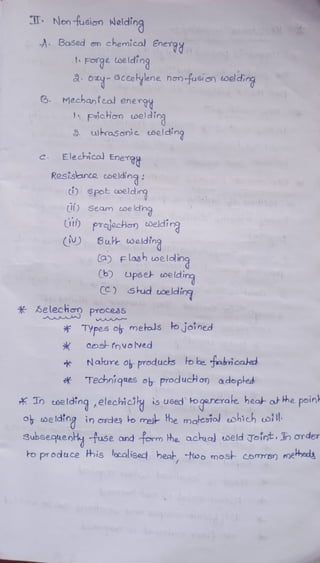 II. Non-fusion Welding
A. Based on chemical Energy
1. Forge welding
2. oxy-accetylene non-fusion welding
B. Mechanical energy
1. Friction welding
2. ultrasonic welding
C. Electrical Energy
Resistance welding:
(i) Spot welding
(ii) Seam welding
(iii) projection welding
(iv) Butt welding
(a) Flash welding
(b) Upset welding
(c) Stud welding
* Selection process
* Types of metals to joined
* cost involved
* Nature of products to be fabricated
* Techniques of production adopted
* In welding, electricity is used to generate heat at the point
of welding in order to melt the material which will
subsequently fuse and form the actual weld Joint. In order
to produce this localised heat, two most common methods